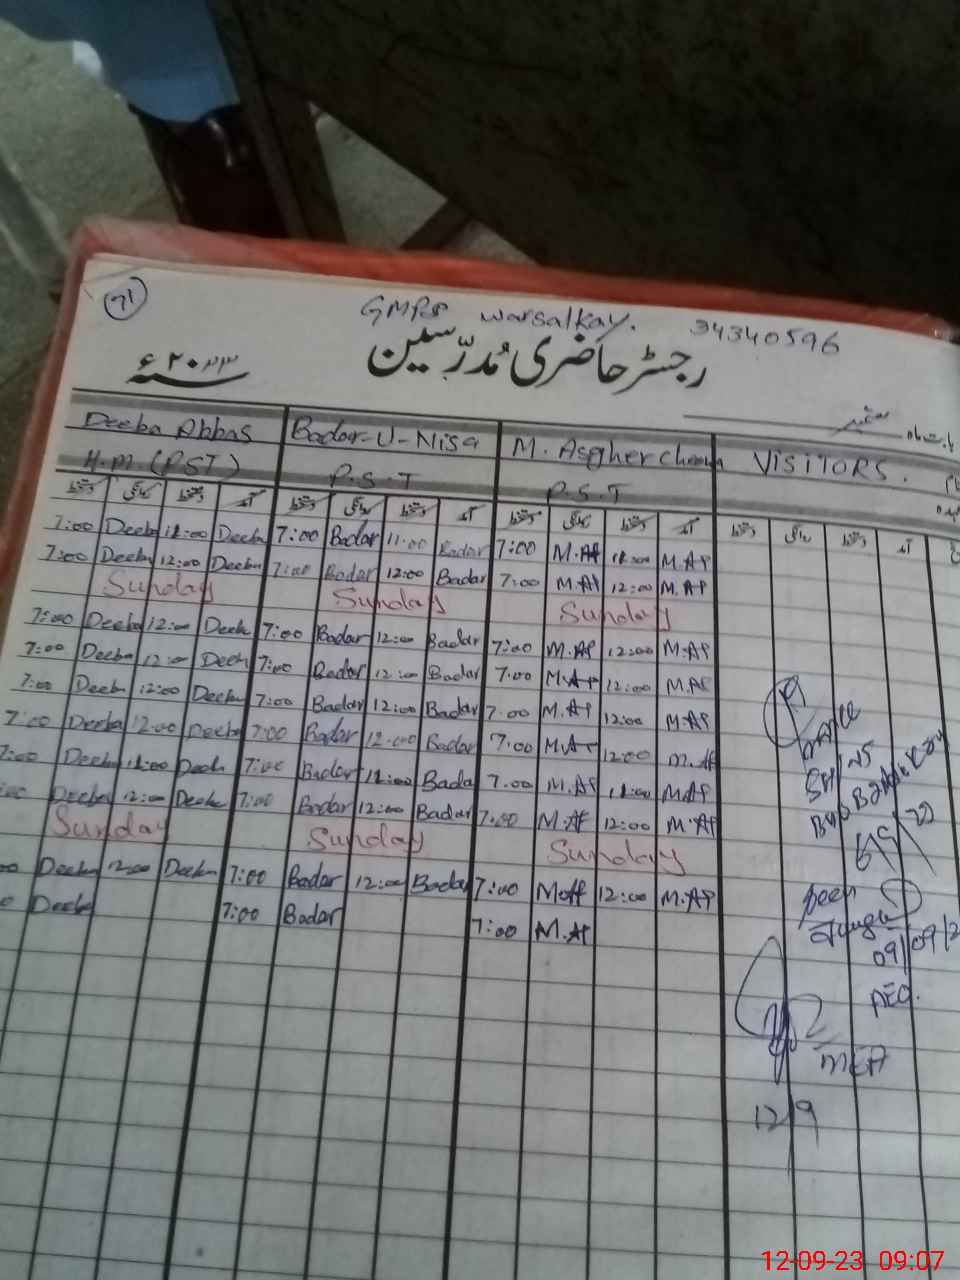 71
GMPS Warsalkay. 34340596
رجسٹر حاضری مدرّسین
۲۰۲۳ء
Deeba Abbas Badar-U-Nisa M. Asgher VISITORS.
H.M.(PST) P.S.T P.S.T
دستخط روانگی دستخط آمد دستخط روانگی دستخط آمد دستخط روانگی دستخط آمد دستخط روانگی دستخط آمد
7:00 Deeba 11:00 Deeba 7:00 Badar 11:00 Badar 7:00 M.AP 11:00 M.AP
7:00 Deeba 12:00 Deeba 7:00 Badar 12:00 Badar 7:00 M.AP 12:00 M.AP
Sunday Sunday Sunday
7:00 Deeba 12:00 Deeb 7:00 Badar 12:00 Badar 7:00 M.AP 12:00 M.AP
7:00 Deeba 12:00 Deeb 7:00 Badar 12:00 Badar 7:00 M.AP 12:00 M.AP
7:00 Deeba 12:00 Deeba 7:00 Badar 12:00 Badar 7:00 M.AP 12:00 M.AP
7:00 Deeba 12:00 Deeba 7:00 Badar 12:00 Badar 7:00 M.AP 12:00 M.AP
7:00 Deeba 11:00 Deeb 7:00 Badar 11:00 Bada 7:00 M.AP 11:00 M.AP
:00 Deeba 12:00 Deeba 7:00 Badar 12:00 Badar 7:00 M.AP 12:00 M.AP
Sunday Sunday Sunday
00 Deeba 12:00 Deeba 7:00 Badar 12:00 Badar 7:00 M.AP 12:00 M.AP
0 Deeba 7:00 Badar 7:00 M.AP
Seen
09/09/2
AEO.
MEA
12/9
12-09-23 09:07